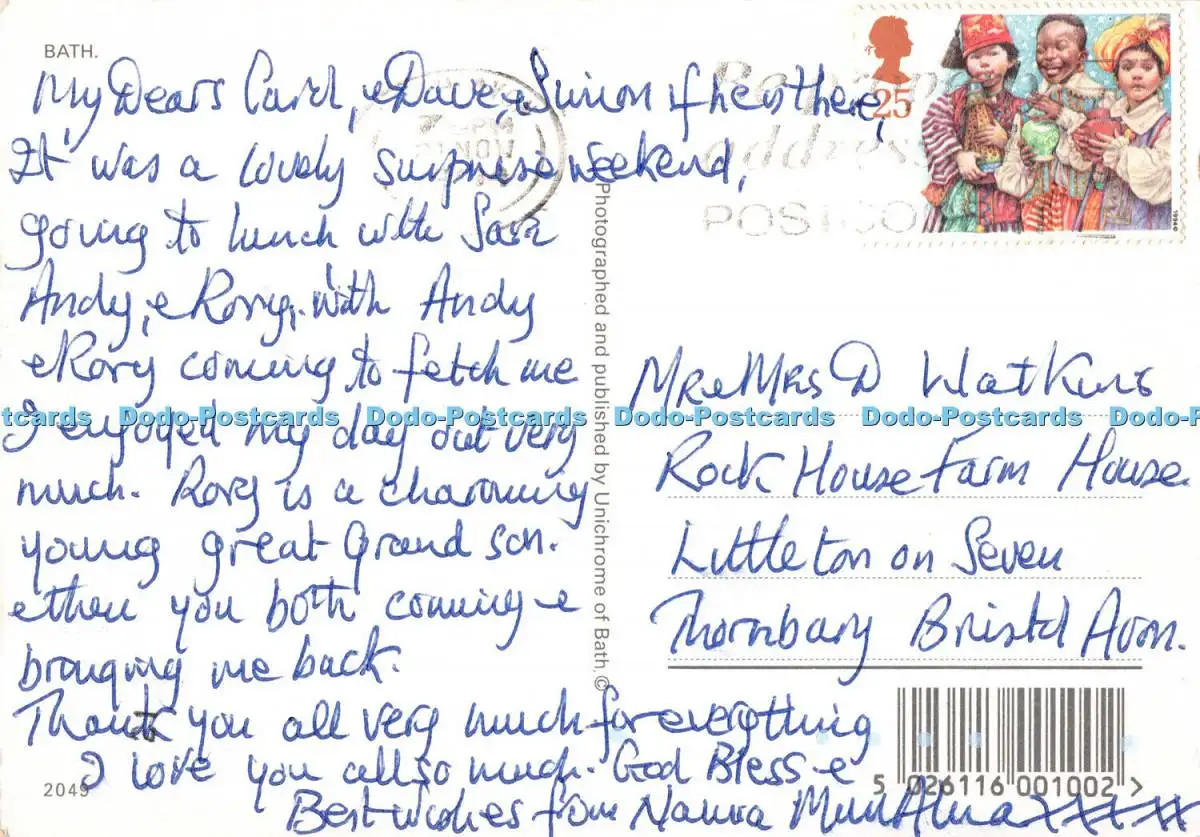 BATH.
My Dears Carol, & Dave, & Simon if he is there,
It was a lovely surprise weekend,
going to lunch with Sara
Andy, & Rory, with Andy
& Rory coming to fetch me
I enjoyed my day out very
much. Rory is a charming
young great Grand son.
& then you both coming &
bringing me back.
Thank you all very much for everything
I love you all so much. God Bless &
Best wishes from Nanna Mum Alma xxxx
2049
Photographed and published by Unichrome of Bath ©
25
address
POSTCO
Mr & Mrs D Watkins
Rock House Farm House.
Littleton on Seven
Thornbury Bristol Avon.
5 026116 001002 >
tcards Dodo-Postcards Dodo-Postcards Dodo-Postcards Dodo-Postcards Dodo-Postcards